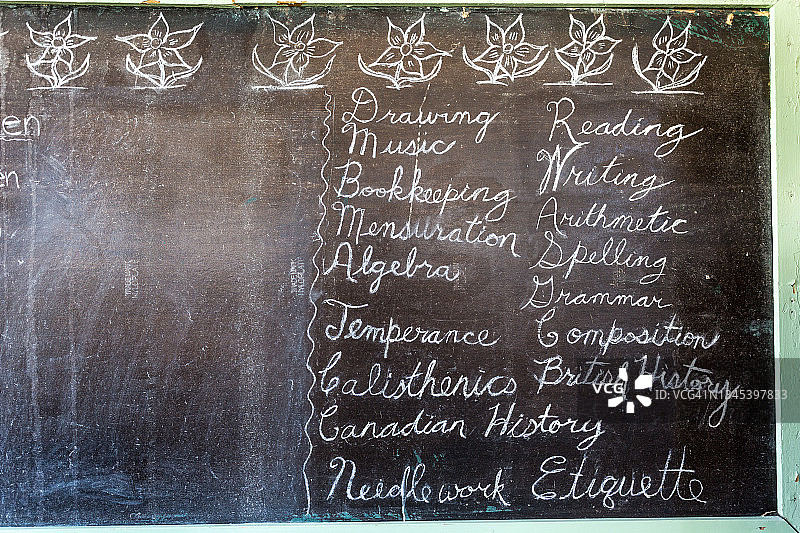 en
en
Drawing
Music
Bookkeeping
Mensuration
Algebra
Temperance
Calisthenics
Canadian History
Needlework
Reading
Writing
Arithmetic
Spelling
Grammar
Composition
British History
Etiquette
VCG
ID: VCG41N1345397833